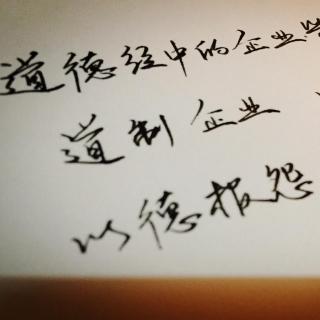 道德经中的企业
道制企业
以德报怨